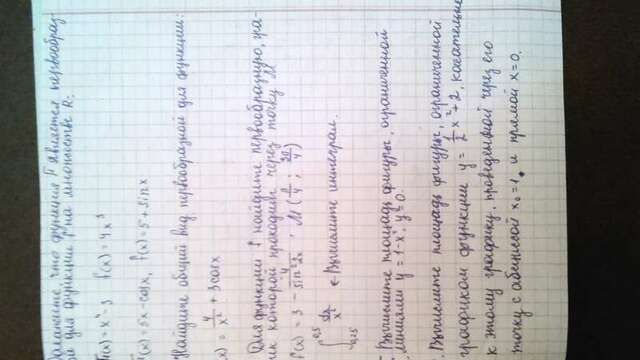 что функция F является первообраз-
для функции f на множестве R:
F(x)=x⁴-3 f(x)=4x³
F(x)=5x-cosx, f(x)=5+sinx
Найдите общий вид первообразной для функции:
(x)= 4/x² + 3cosx
Для функции f найдите первообразную, гра-
ик которой проходит через точку M
f(x)=3 - 4/sin²2x, M(π/4; 3π/4)
∫ dx/x² ← Вычислите интеграл.
Вычислите площадь фигуры, ограниченной
линиями y=1-x², y=0.
Вычислите площадь фигуры, ограниченной
графиком функции y=1/2x²+2, касательной
к этому графику, проведенной через его
точку с абсциссой x₀=1, и прямой x=0.